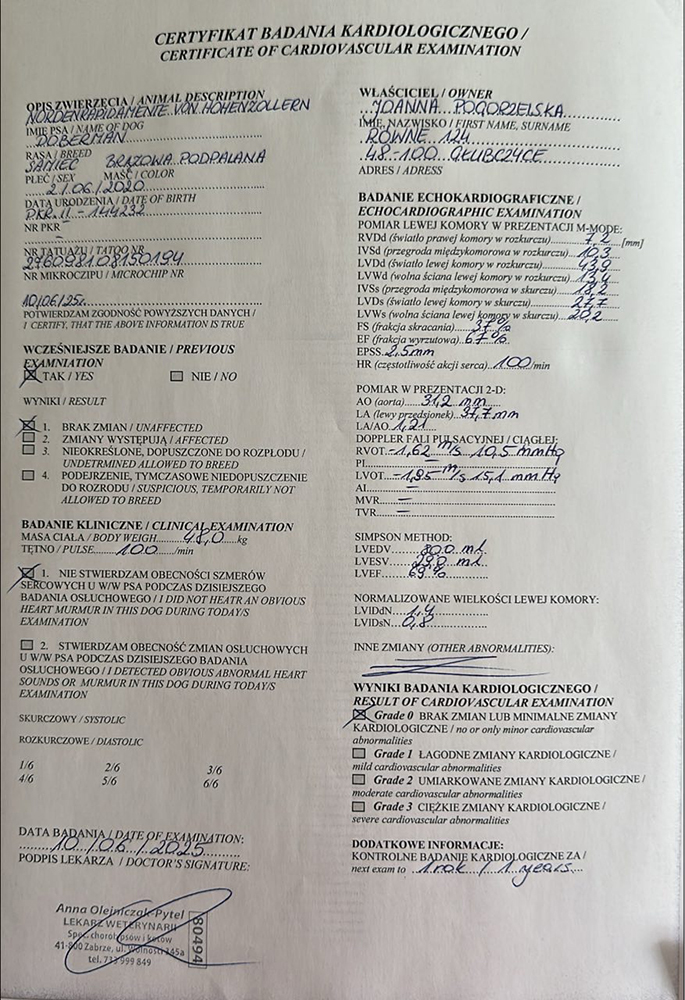 CERTYFIKAT BADANIA KARDIOLOGICZNEGO /
CERTIFICATE OF CARDIOVASCULAR EXAMINATION
OPIS ZWIERZĘCIA / ANIMAL DESCRIPTION
NORDENRAPIDAMENTE VON HOHENZOLLERN
IMIĘ PSA / NAME OF DOG
DOBERMAN
RASA / BREED
SAMIEC BRĄZOWA PODPALANA
PŁEĆ / SEX MAŚĆ / COLOR
21/06/2020
DATA URODZENIA / DATE OF BIRTH
PKR.II - 144232
NR PKR
–
NR TATUAŻU / TATOO NR
NR MIKROCZIPU / MICROCHIP NR
10/06/25r.
POTWIERDZAM ZGODNOŚĆ POWYŻSZYCH DANYCH /
I CERTIFY, THAT THE ABOVE INFORMATION IS TRUE
WCZEŚNIEJSZE BADANIE / PREVIOUS
EXAMNIATION
TAK / YES NIE / NO
WYNIKI / RESULT
1. BRAK ZMIAN / UNAFFECTED
2. ZMIANY WYSTĘPUJĄ / AFFECTED
3. NIEOKREŚLONE, DOPUSZCZONE DO ROZPŁODU /
UNDETRMINED ALLOWED TO BREED
4. PODEJRZENIE, TYMCZASOWE NIEDOPUSZCZENIE
DO ROZRODU / SUSPICIOUS, TEMPORARILY NOT
ALLOWED TO BREED
BADANIE KLINICZNE / CLINICAL EXAMINATION
MASA CIAŁA / BODY WEIGH 48,0 kg
TĘTNO / PULSE 100 /min
1. NIE STWIERDZAM OBECNOŚCI SZMERÓW
SERCOWYCH U W/W PSA PODCZAS DZISIEJSZEGO
BADANIA OSŁUCHOWEGO / I DID NOT HEATR AN OBVIOUS
HEART MURMUR IN THIS DOG DURING TODAY/S
EXAMINATION
2. STWIERDZAM OBECNOŚĆ ZMIAN OSŁUCHOWYCH
U W/W PSA PODCZAS DZISIEJSZEGO BADANIA
OSŁUCHOWEGO / I DETECTED OBVIOUS ABNORMAL HEART
SOUNDS OR MURMUR IN THIS DOG DURING TODAY/S
EXAMINATION
SKURCZOWY / SYSTOLIC
ROZKURCZOWE / DIASTOLIC
1/6 2/6 3/6
4/6 5/6 6/6
DATA BADANIA / DATE OF EXAMINATION:
10/06/2025
PODPIS LEKARZA / DOCTOR'S SIGNATURE:
Anna Olejniczak-Pytel
LEKARZ WETERYNARII
Spec. chorób psów i kotów
41-800 Zabrze, ul. Wolności 145a
80494
WŁAŚCICIEL / OWNER
JOANNA POGORZELSKA
IMIĘ, NAZWISKO / FIRST NAME, SURNAME
RÓWNE 124
48-100 GŁUBCZYCE
ADRES / ADRESS
BADANIE ECHOKARDIOGRAFICZNE /
ECHOCARDIOGRAPHIC EXAMINATION
POMIAR LEWEJ KOMORY W PREZENTACJI M-MODE:
RVDd (światło prawej komory w rozkurczu) 7,2 [mm]
IVSd (przegroda międzykomorowa w rozkurczu) 10,3
LVDd (światło lewej komory w rozkurczu) 43,9
LVWd (wolna ściana lewej komory w rozkurczu) 13,4
IVSs (przegroda międzykomorowa w skurczu) 18,2
LVDs (światło lewej komory w skurczu) 27,7
LVWs (wolna ściana lewej komory w skurczu) 20,2
FS (frakcja skracania) 37%
EF (frakcja wyrzutowa) 67%
EPSS 2,5mm
HR (częstotliwość akcji serca) 100 /min
POMIAR W PREZENTACJI 2-D:
AO (aorta) 31,2 mm
LA (lewy przedsionek) 37,7mm
LA/AO 1,21
DOPPLER FALI PULSACYJNEJ / CIĄGŁEJ:
RVOT -1,62 m/s 10,5 mmHg
PI –
LVOT -1,95 m/s 15,1 mmHg
AI –
MVR –
TVR –
SIMPSON METHOD:
LVEDV ml
LVESV ml
LVEF 69%
NORMALIZOWANE WIELKOŚCI LEWEJ KOMORY:
LVIDdN 1,4
LVIDsN 0,8
INNE ZMIANY (OTHER ABNORMALITIES):
WYNIKI BADANIA KARDIOLOGICZNEGO /
RESULT OF CARDIOVASCULAR EXAMINATION
Grade 0 BRAK ZMIAN LUB MINIMALNE ZMIANY
KARDIOLOGICZNE / no or only minor cardiovascular
abnormalities
Grade 1 ŁAGODNE ZMIANY KARDIOLOGICZNE /
mild cardiovascular abnormalities
Grade 2 UMIARKOWANE ZMIANY KARDIOLOGICZNE /
moderate cardiovascular abnormalities
Grade 3 CIĘŻKIE ZMIANY KARDIOLOGICZNE /
severe cardiovascular abnormalities
DODATKOWE INFORMACJE:
KONTROLNE BADANIE KARDIOLOGICZNE ZA /
next exam to 1 rok / 1 years